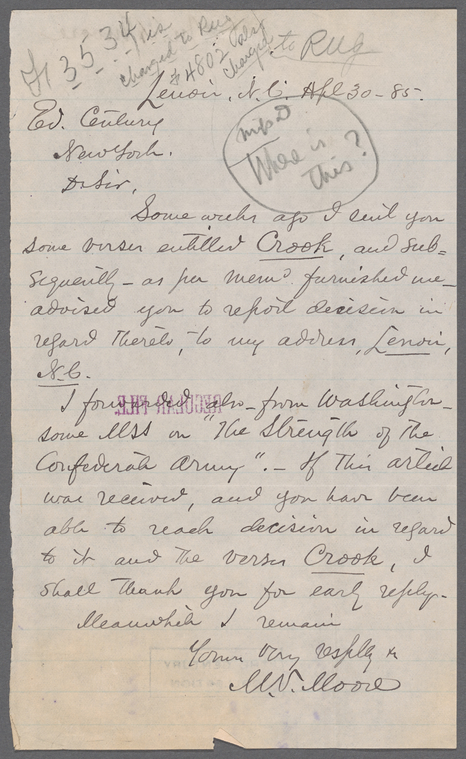 3534
charged to RUG
#4802
charged
to RUG
Lenoir, N.C. Apl 30 - 85.
Ed. Century
New York.
D Sir,
Who is
this?
Some weeks ago I sent you
some verses entitled Crook, and sub=
sequently - as per memo furnished me -
advised you to report decision in
regard thereto, to my address, Lenoir,
N.C.
I forwarded also - from Washington -
REGULAR FILE
some MSS on "The Strength of the
Confederate Army". - If this article
was received, and you have been
able to reach decision in regard
to it and the verses Crook, I
shall thank you for early reply -
Meanwhile I remain
Yours very respfly &
M.V. Moore